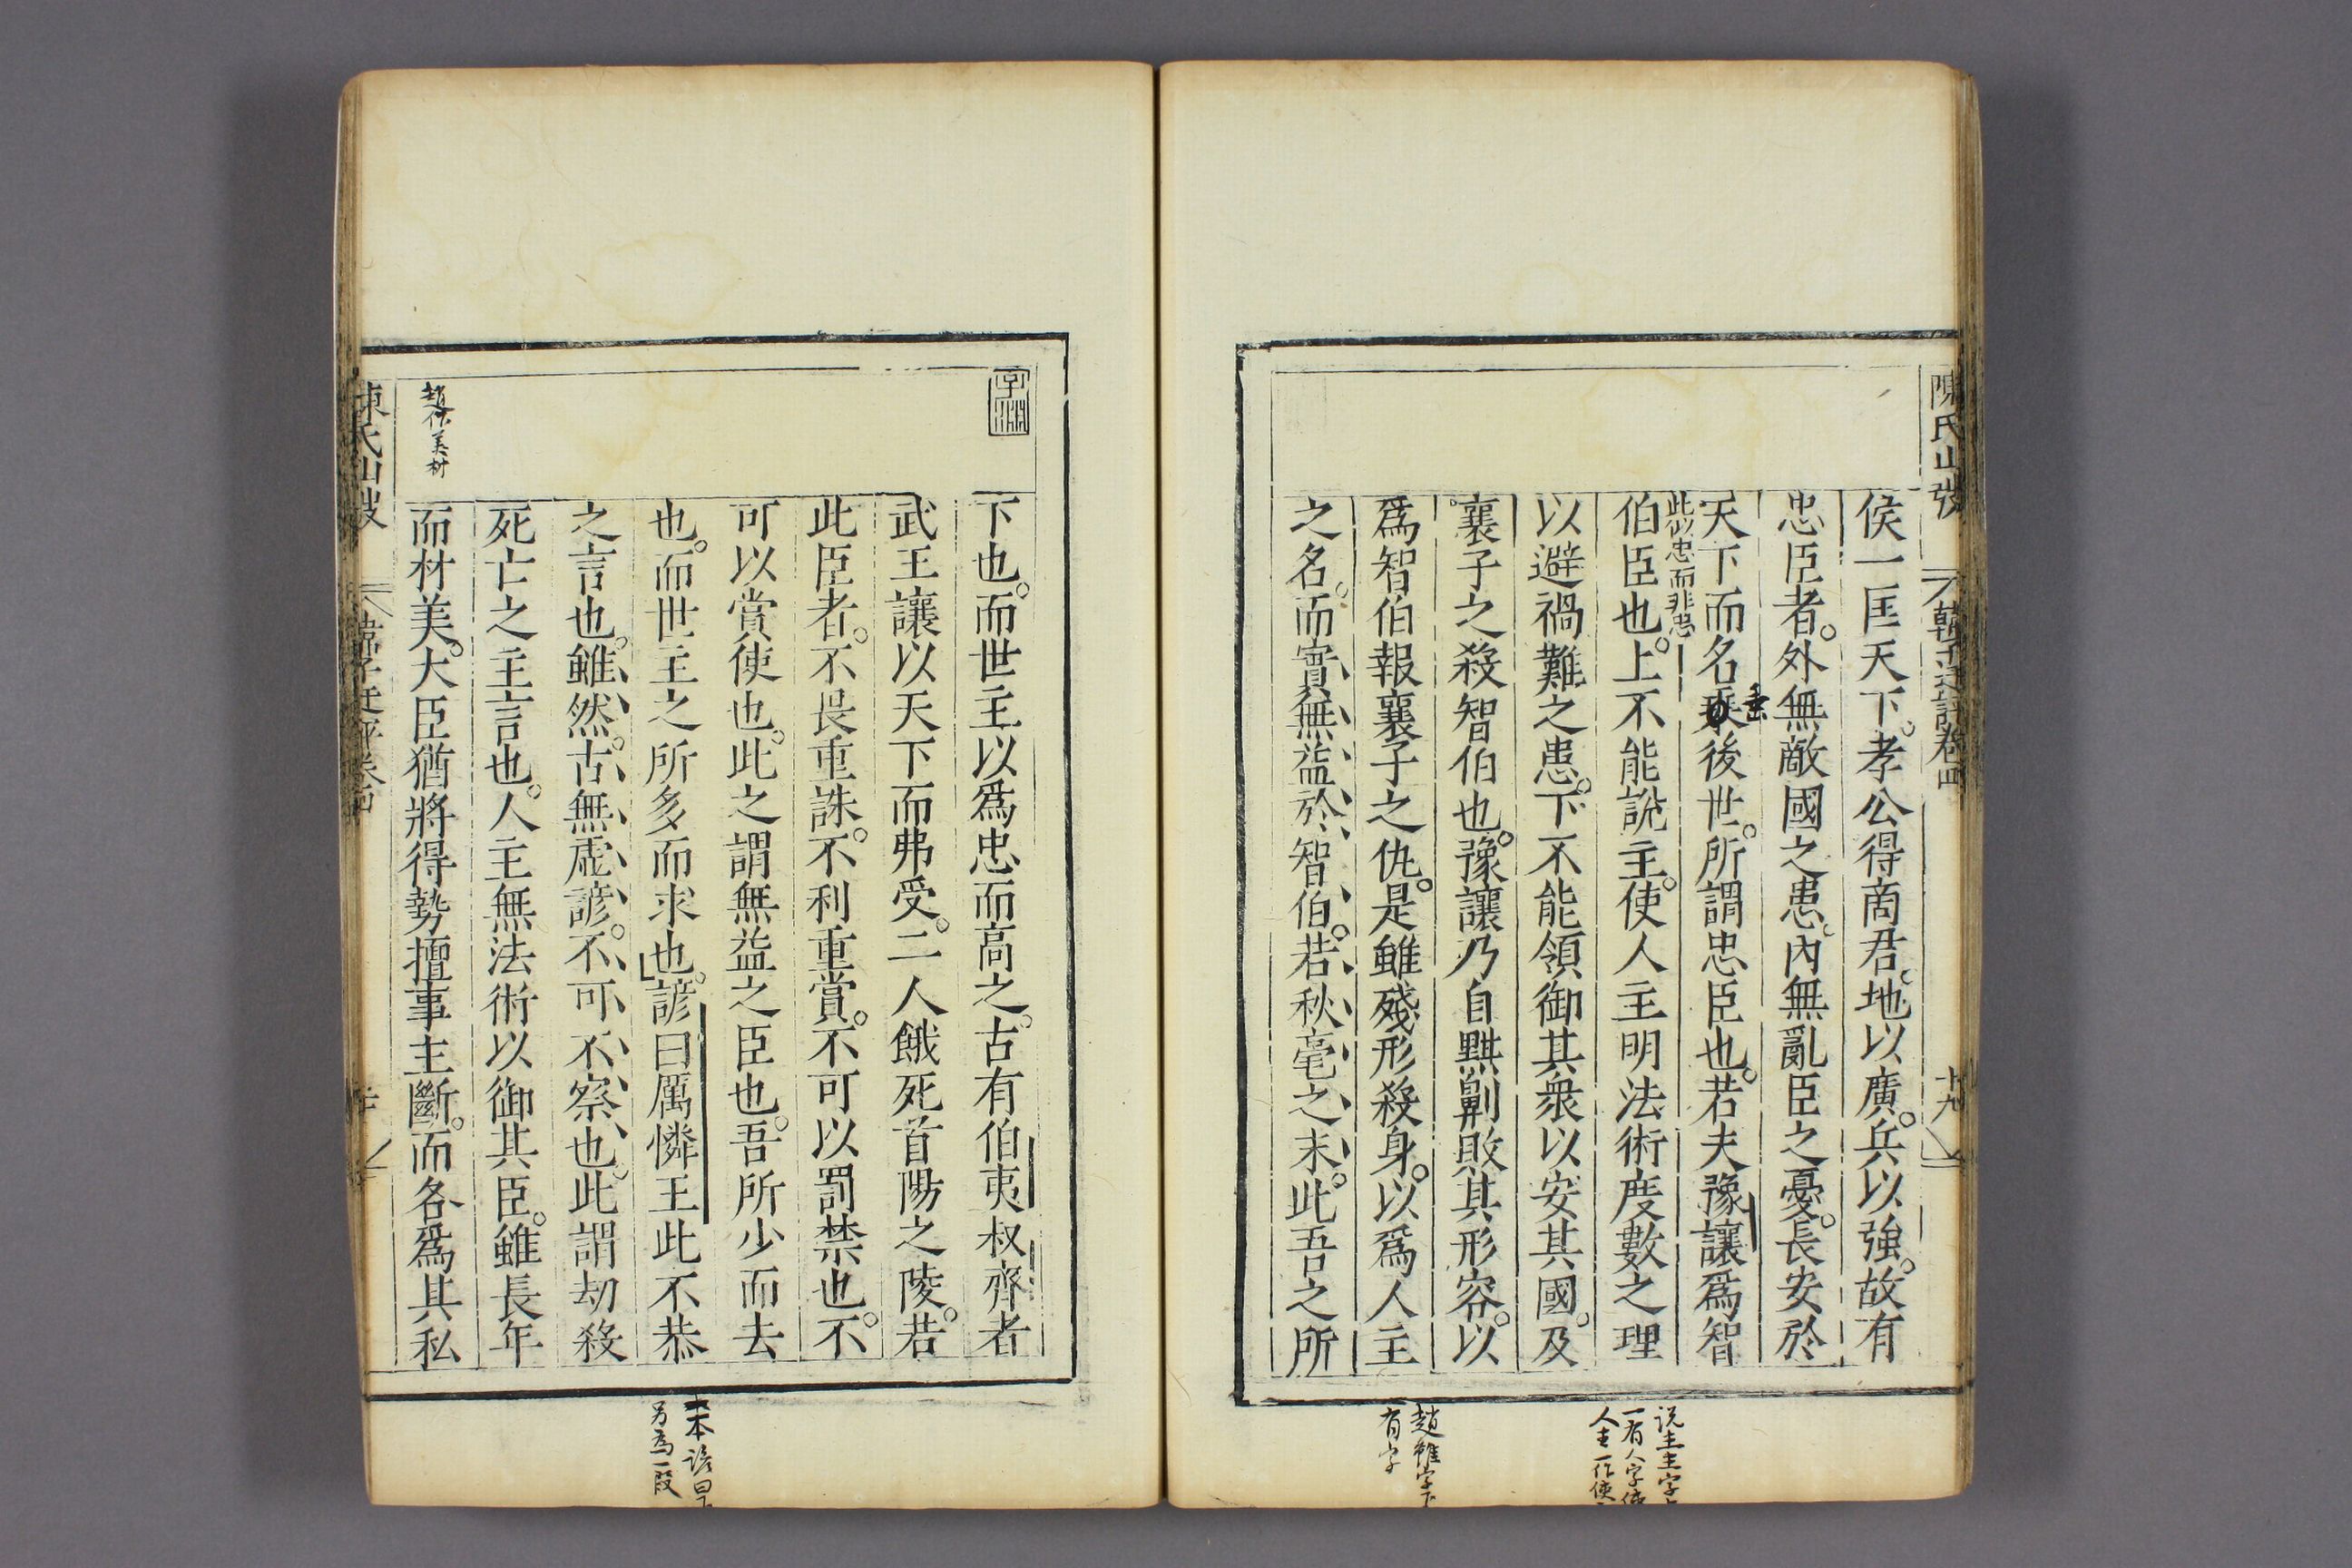 陳氏山房
韓子迂評卷四
十九
侯一匡天下。孝公得商君。地以廣。兵以強。故有
忠臣者。外無敵國之患。內無亂臣之憂。長安於
天下而名乘後世。所謂忠臣也。若夫豫讓爲智
垂
此似忠而非忠
伯臣也。上不能說主。使人主明法術度數之理
以避禍難之患。下不能領御其衆以安其國。及
襄子之殺智伯也。豫讓乃自黔劓敗其形容。以
爲智伯報襄子之仇。是雖殘形殺身。以爲人主
之名。而實無益於智伯。若秋毫之末。此吾之所
说主主字
一有人字使
人主一作使
趙雖字下
有字
字淵
下也。而世主以爲忠而高之。古有伯夷叔齊者
武王讓以天下而弗受。二人餓死首陽之陵。若
此臣者。不畏重誅。不利重賞。不可以罰禁也。不
可以賞使也。此之謂無益之臣也。吾所少而去
也。而世主之所多而求也。諺曰厲憐王此不恭
之言也。雖然。古無虛諺。不可不察也。此謂劫殺
死亡之主言也。人主無法術以御其臣。雖長年
而材美。大臣猶將得勢擅事主斷。而各爲其私
趙作美材
本諺曰
另為一段
陳氏山房
韓子迂評卷四